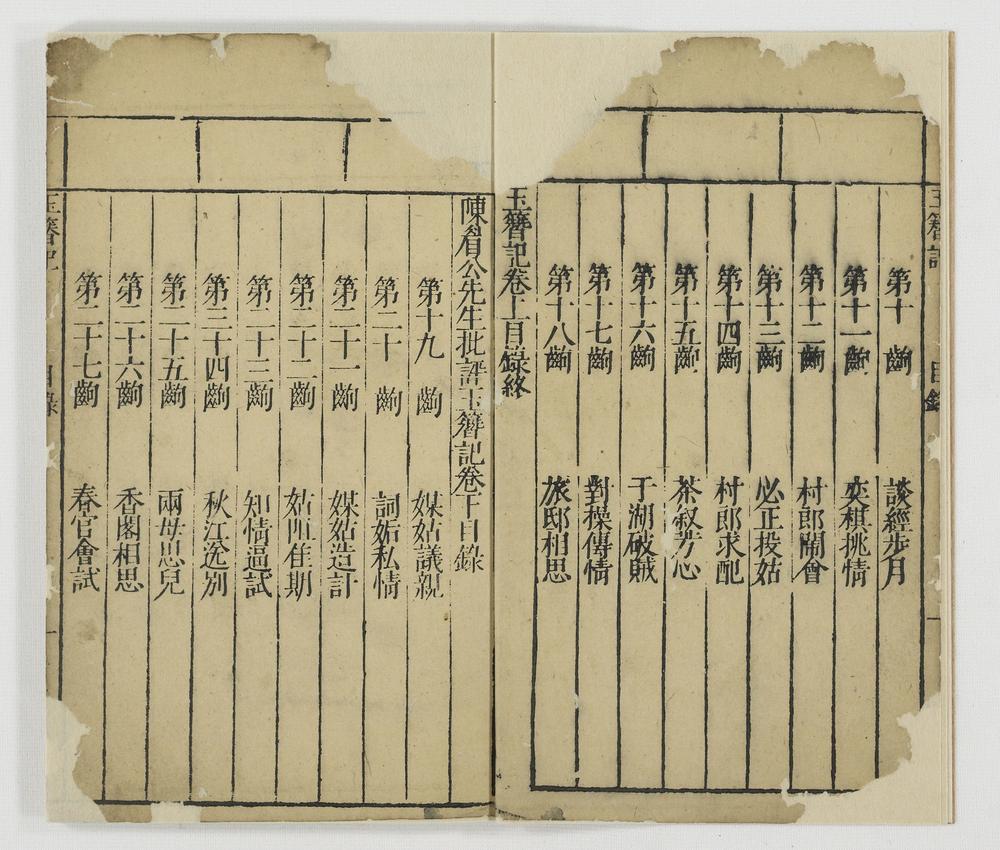 玉簪記
目錄
一
第十齣 談經步月
第十一齣 奕棋挑情
第十二齣 村郎鬧會
第十三齣 必正投姑
第十四齣 村郎求配
第十五齣 茶叙芳心
第十六齣 于湖破賊
第十七齣 對操傳情
第十八齣 旅邸相思
玉簪記卷上目錄終
陳眉公先生批評玉簪記卷下目錄
第十九齣 媒姑議親
第二十齣 詞姤私情
第二十一齣 媒姑造計
第二十二齣 姑阻佳期
第二十三齣 知情逼試
第二十四齣 秋江送別
第二十五齣 兩母思兒
第二十六齣 香閣相思
第二十七齣 春官會試
玉簪記
目錄